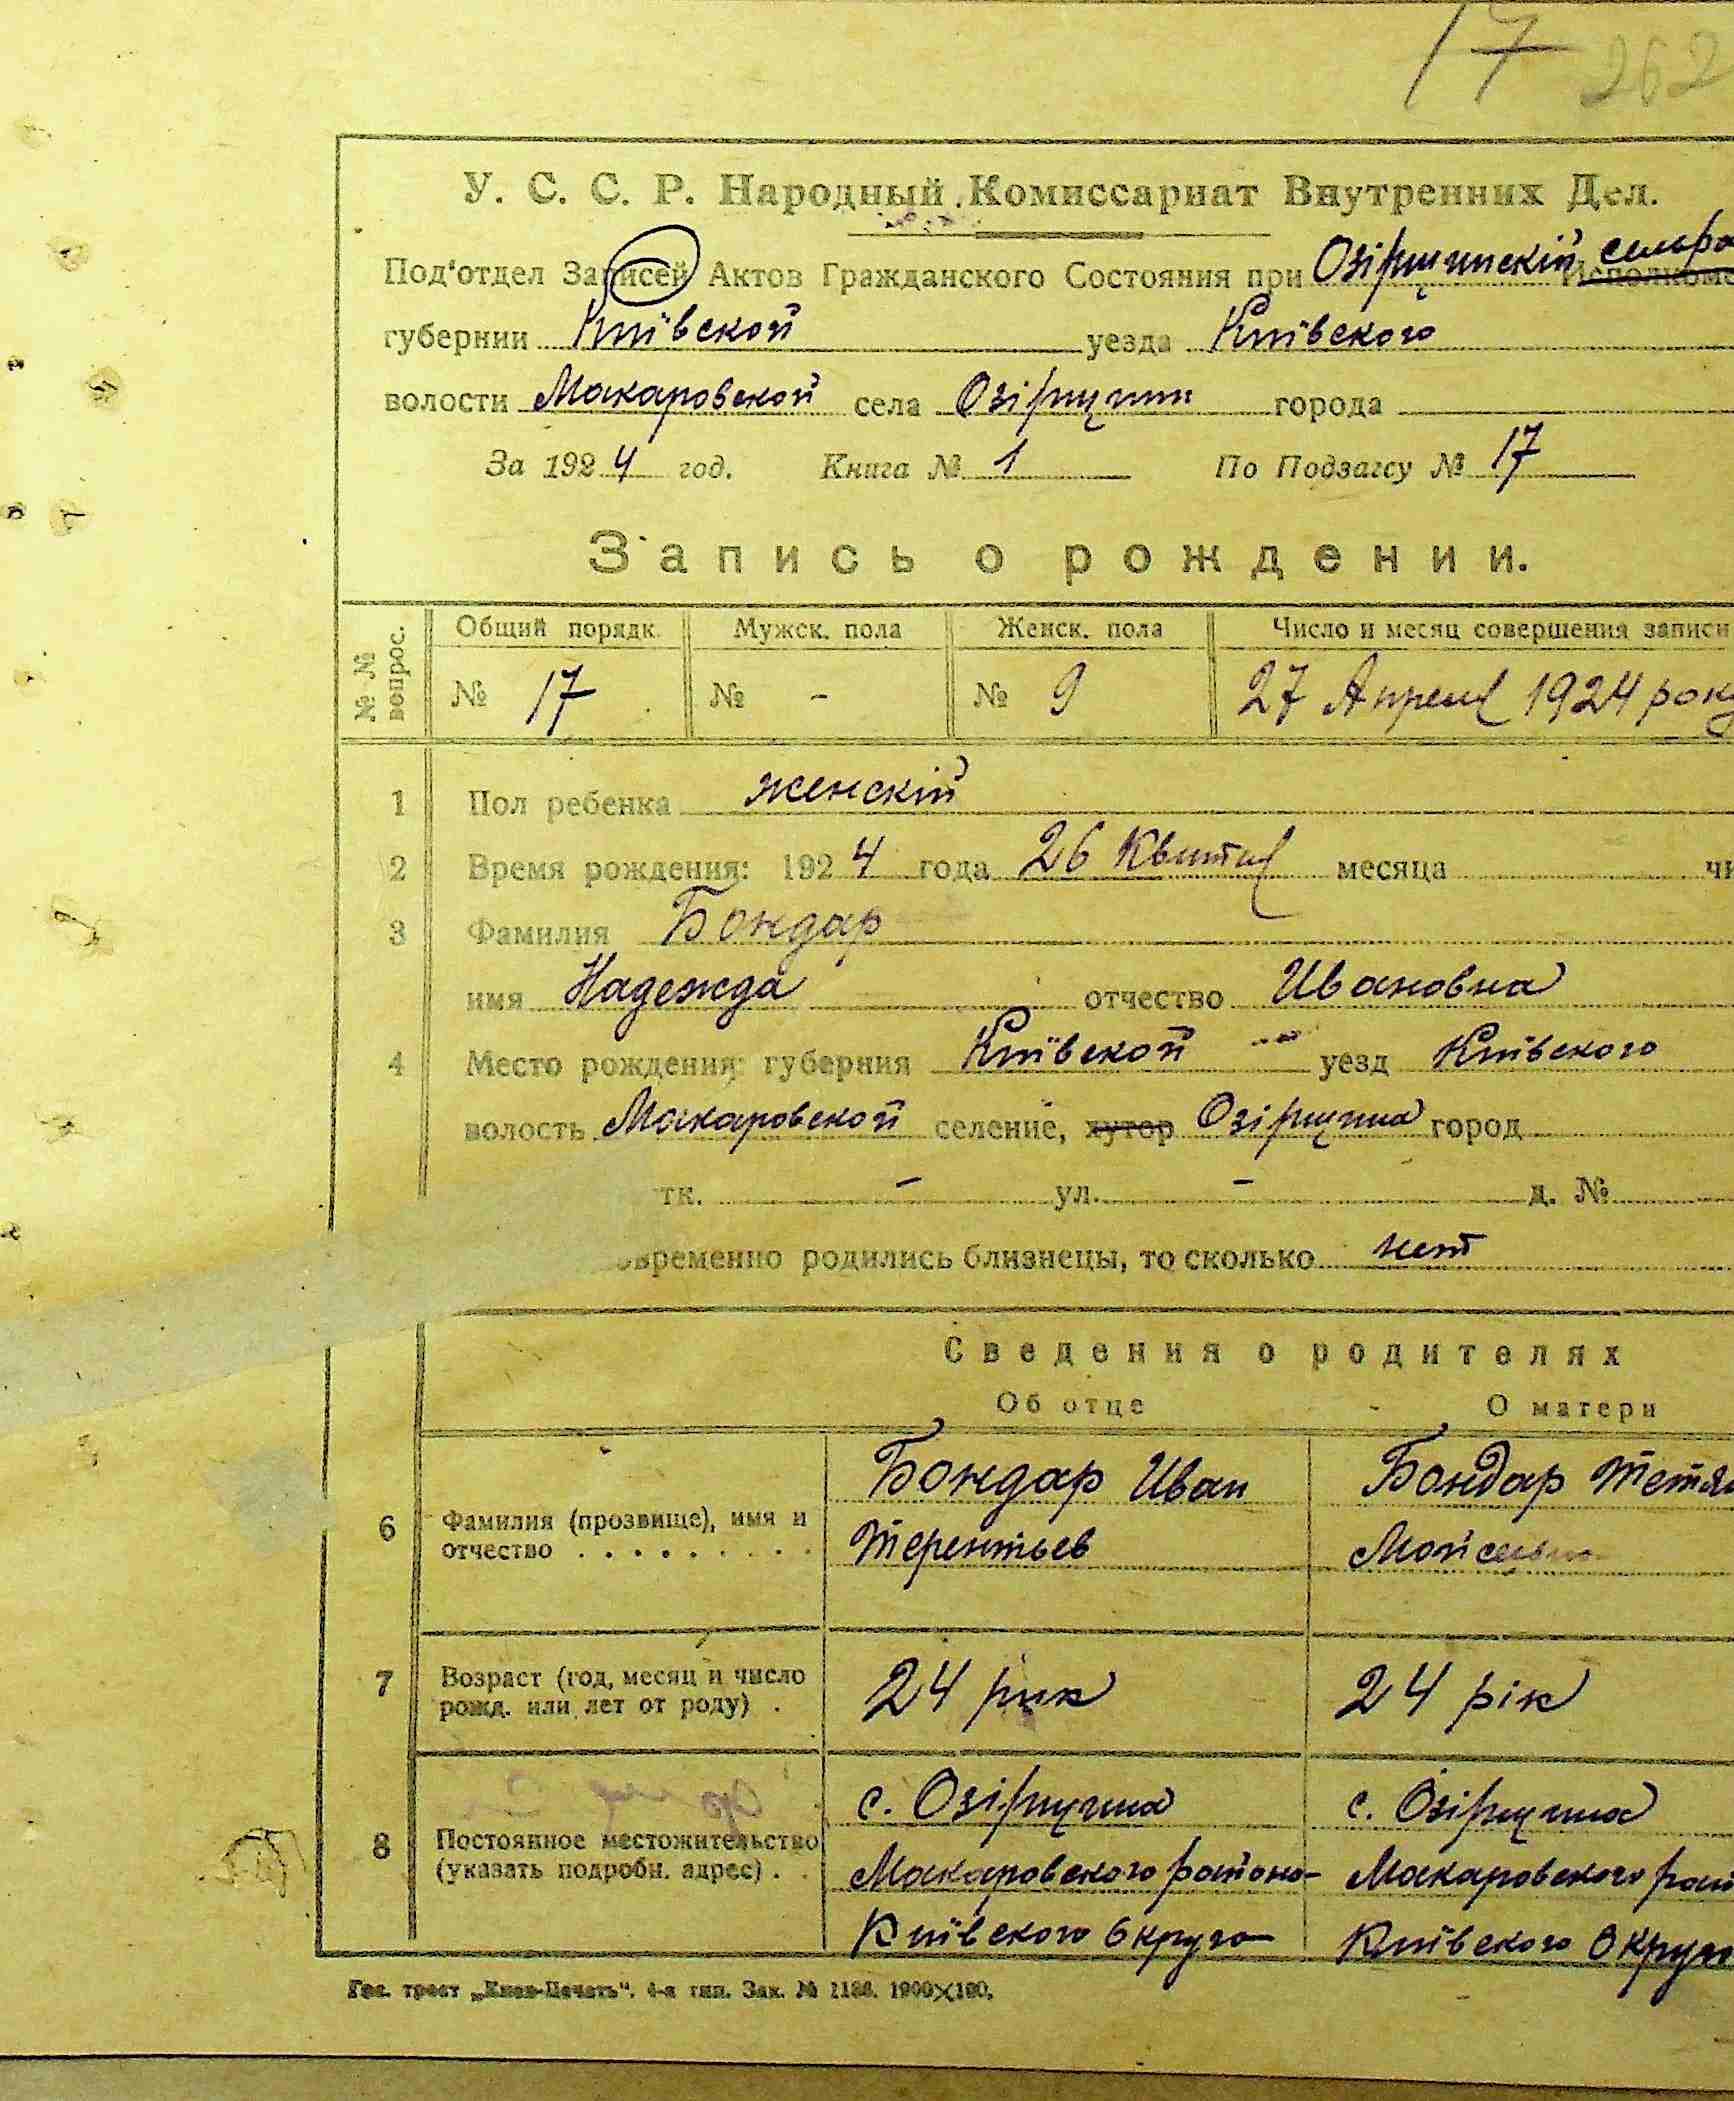 17 262
У. С. С. Р. Народный Комиссариат Внутренних Дел.
Под'отдел Записей Актов Гражданского Состояния при Озірщинскій сельра
губернии Київской уезда Київского
волости Макаровской села Озірщини города
За 1924 год. Книга № 1 По Подзагсу № 17
Запись о рождении.
№№ вопрос. Общий порядк. Мужск. пола Женск. пола Число и месяц совершения записи
№ 17 № - № 9 27 Апреля 1924 року
1 Пол ребенка женскій
2 Время рождения: 1924 года 26 Квитня месяца чи
3 Фамилия Бондар
имя Надежда отчество Ивановна
4 Место рождения: губерния Київской уезд Київского
волость Макаровской селение, хутор Озірщина город
тк. - ул. - д. №
овременно родились близнецы, то сколько нет
Сведения о родителях
Об отце О матери
Бондар Иван Бондар Тетя
6 Фамилия (прозвище), имя и
отчество . . . . . . . . . Терентьев
7 Возраст (год, месяц и число
рожд. или лет от роду) . 24 рик 24 рік
с. Озірщина с. Озірщина
8 Постоянное местожительство
(указать подробн. адрес) . . Макаровского района Макаровского рай
Київского Округа Київского Округ
Гос. трест „Киев-Печать“. 4-я тип. Зак. № 1186. 1900×100.